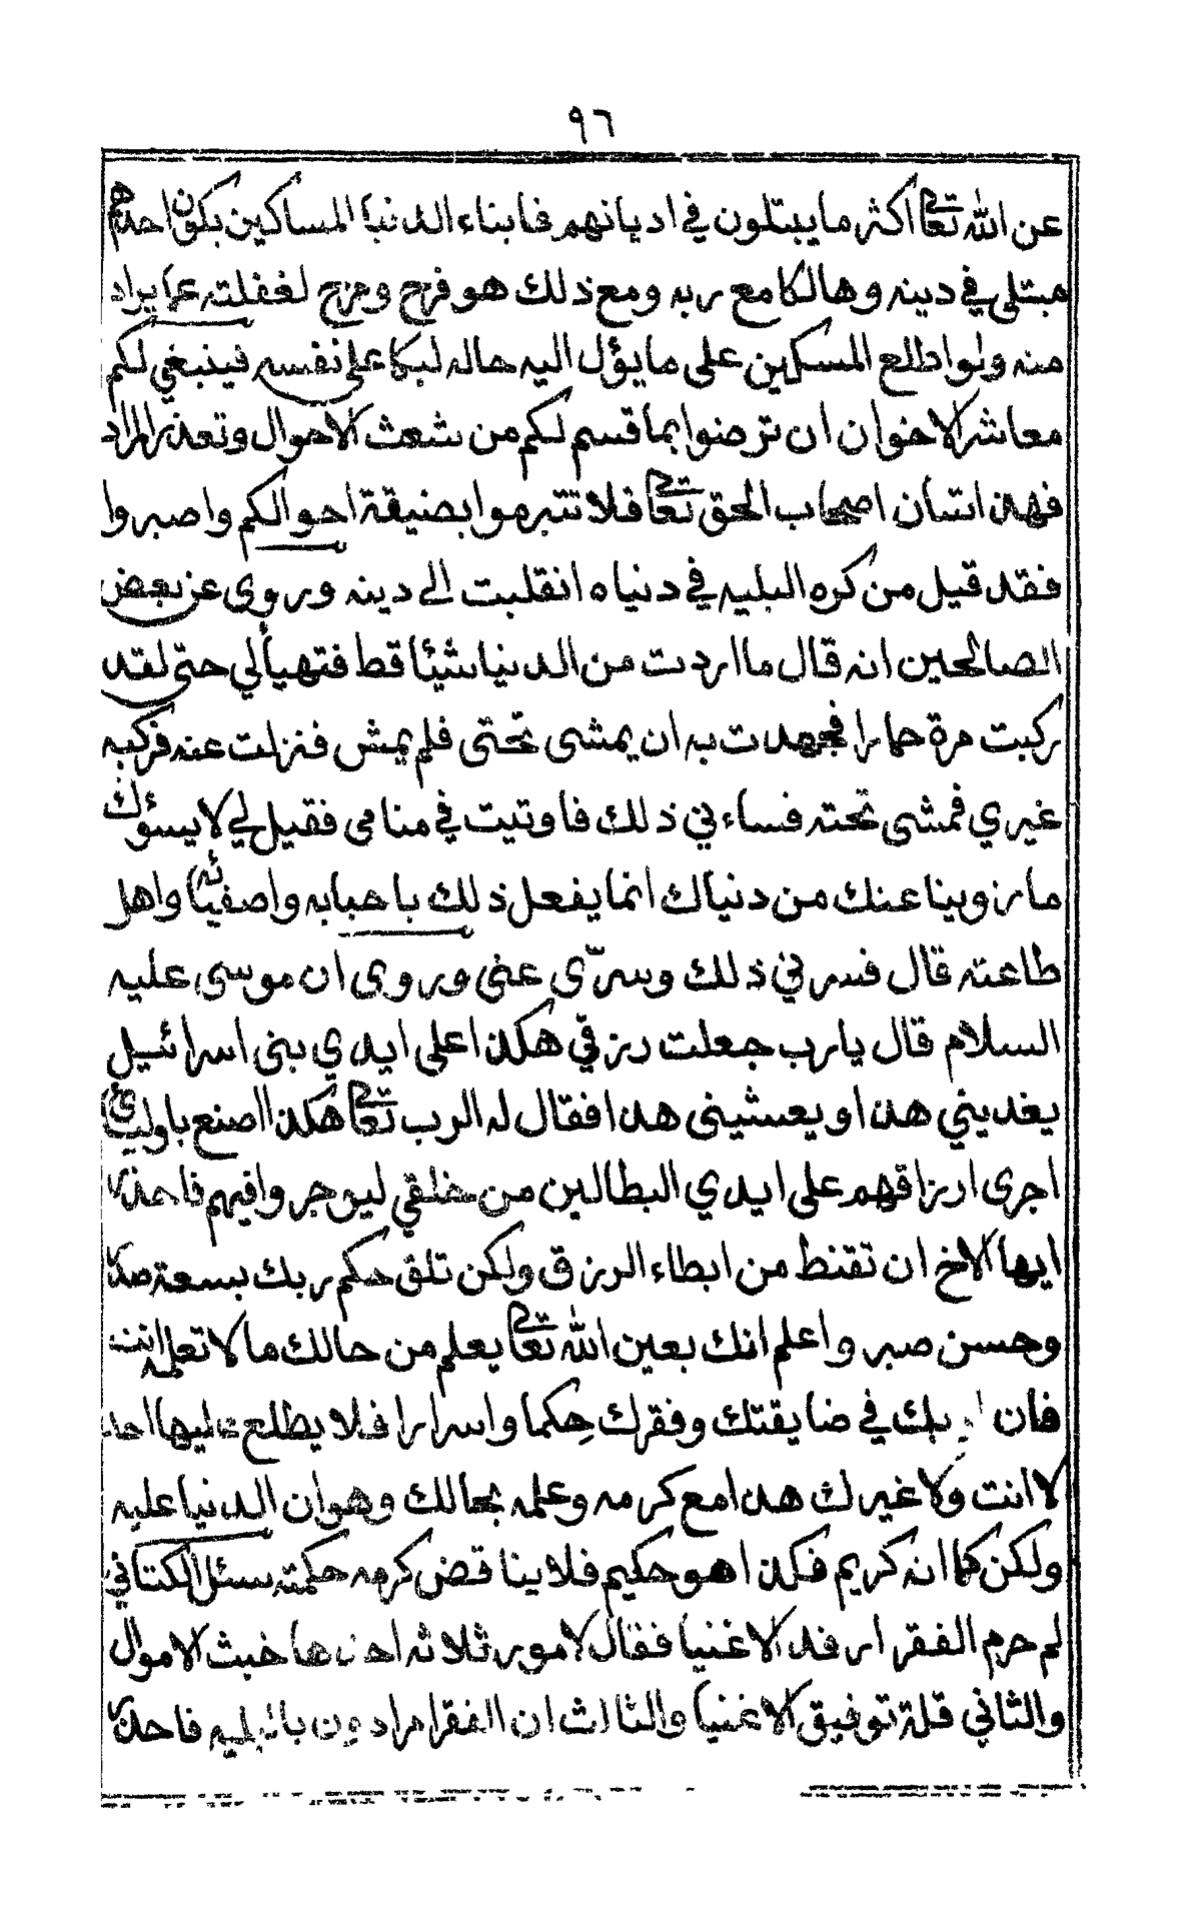 ٩٦
عن الله تعا اكثر ما يبتلون في اديانهم فابناء الدنيا المساكين يكون احدهم
مبتلى في دينه وهالكا مع ربه ومع ذلك هو فرح ومرح لغفلته عما يراد
منه ولو اطلع المسكين على ما يؤل اليه حاله لبكا على نفسه فينبغي لكم
معاشر الاخوان ان ترضوا بما قسم لكم من شعث الاحوال وتعذر المراد
فهذا شأن اصحاب الحق تعا فلا تتبرموا بضيقة احوالكم واصبروا
فقد قيل من كره البليه في دنياه انقلبت الى دينه وروى عن بعض
الصالحين انه قال ما اردت من الدنيا شيئا قط فتهيأ لي حتى لقد
ركبت مرة حمارا فجهدت به ان يمشى تحتى فلم يمش فنزلت عنه فركبه
غيري فمشى تحته فساء ني ذلك فاوتيت في منامى فقيل لي لا يسؤك
ما زوينا عنك من دنياك انما يفعل ذلك باحبابه واصفيائه واهل
طاعته قال فسرني ذلك وسرّى عنى وروى ان موسى عليه
السلام قال يارب جعلت رزقي هكذا على ايدي بنى اسرائيل
يغديني هذا ويعشينى هذا فقال له الرب تعا هكذا اصنع باوليائي
اجرى ارزاقهم على ايدي البطالين من خلقي ليوجروا فيهم فاحذر
ايها الاخ ان تقنط من ابطاء الرزق ولكن تلق حكم ربك بسعة صدر
وحسن صبر واعلم انك بعين الله تعا يعلم من حالك ما لا تعلمه انت
فان لربك في ضايقتك وفقرك حِكما واسرارا فلا يطلع عليها احد
لا انت ولا غيرك هذا مع كرمه وعلمه بحالك وهوان الدنيا عليه
ولكن كما انه كريم فكذا هو حكيم فلا يناقض كرمه حكمته سئل الكتاني
لم حرم الفقرا رفد الاغنيا فقال لامور ثلاثه احدها خبث الاموال
والثاني قلة توفيق الاغنيا والثالث ان الفقرا مرادون بالبليه فاحذر